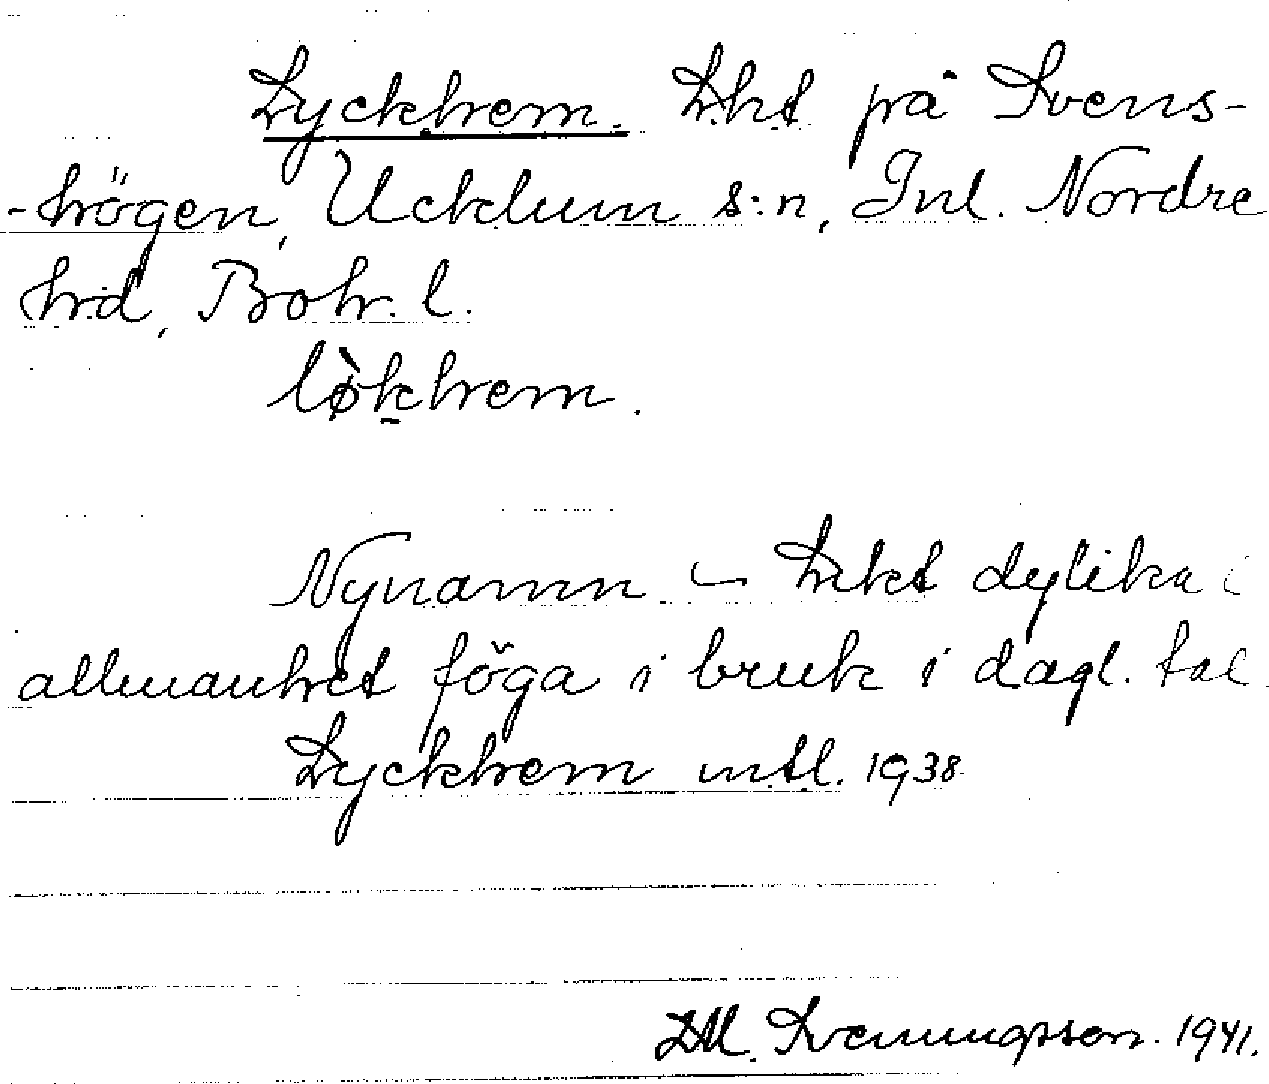 Lyckhem. Lht på Svens-
-högen, Ucklum s:n, Inl. Nordre
hrd, Boh. l.
lø̀khem.
Nynamn. – Likt dylika i
allmänhet föga i bruk i dagl. tal
Lyckhem mtl. 1938
Svenungsson. 1941.